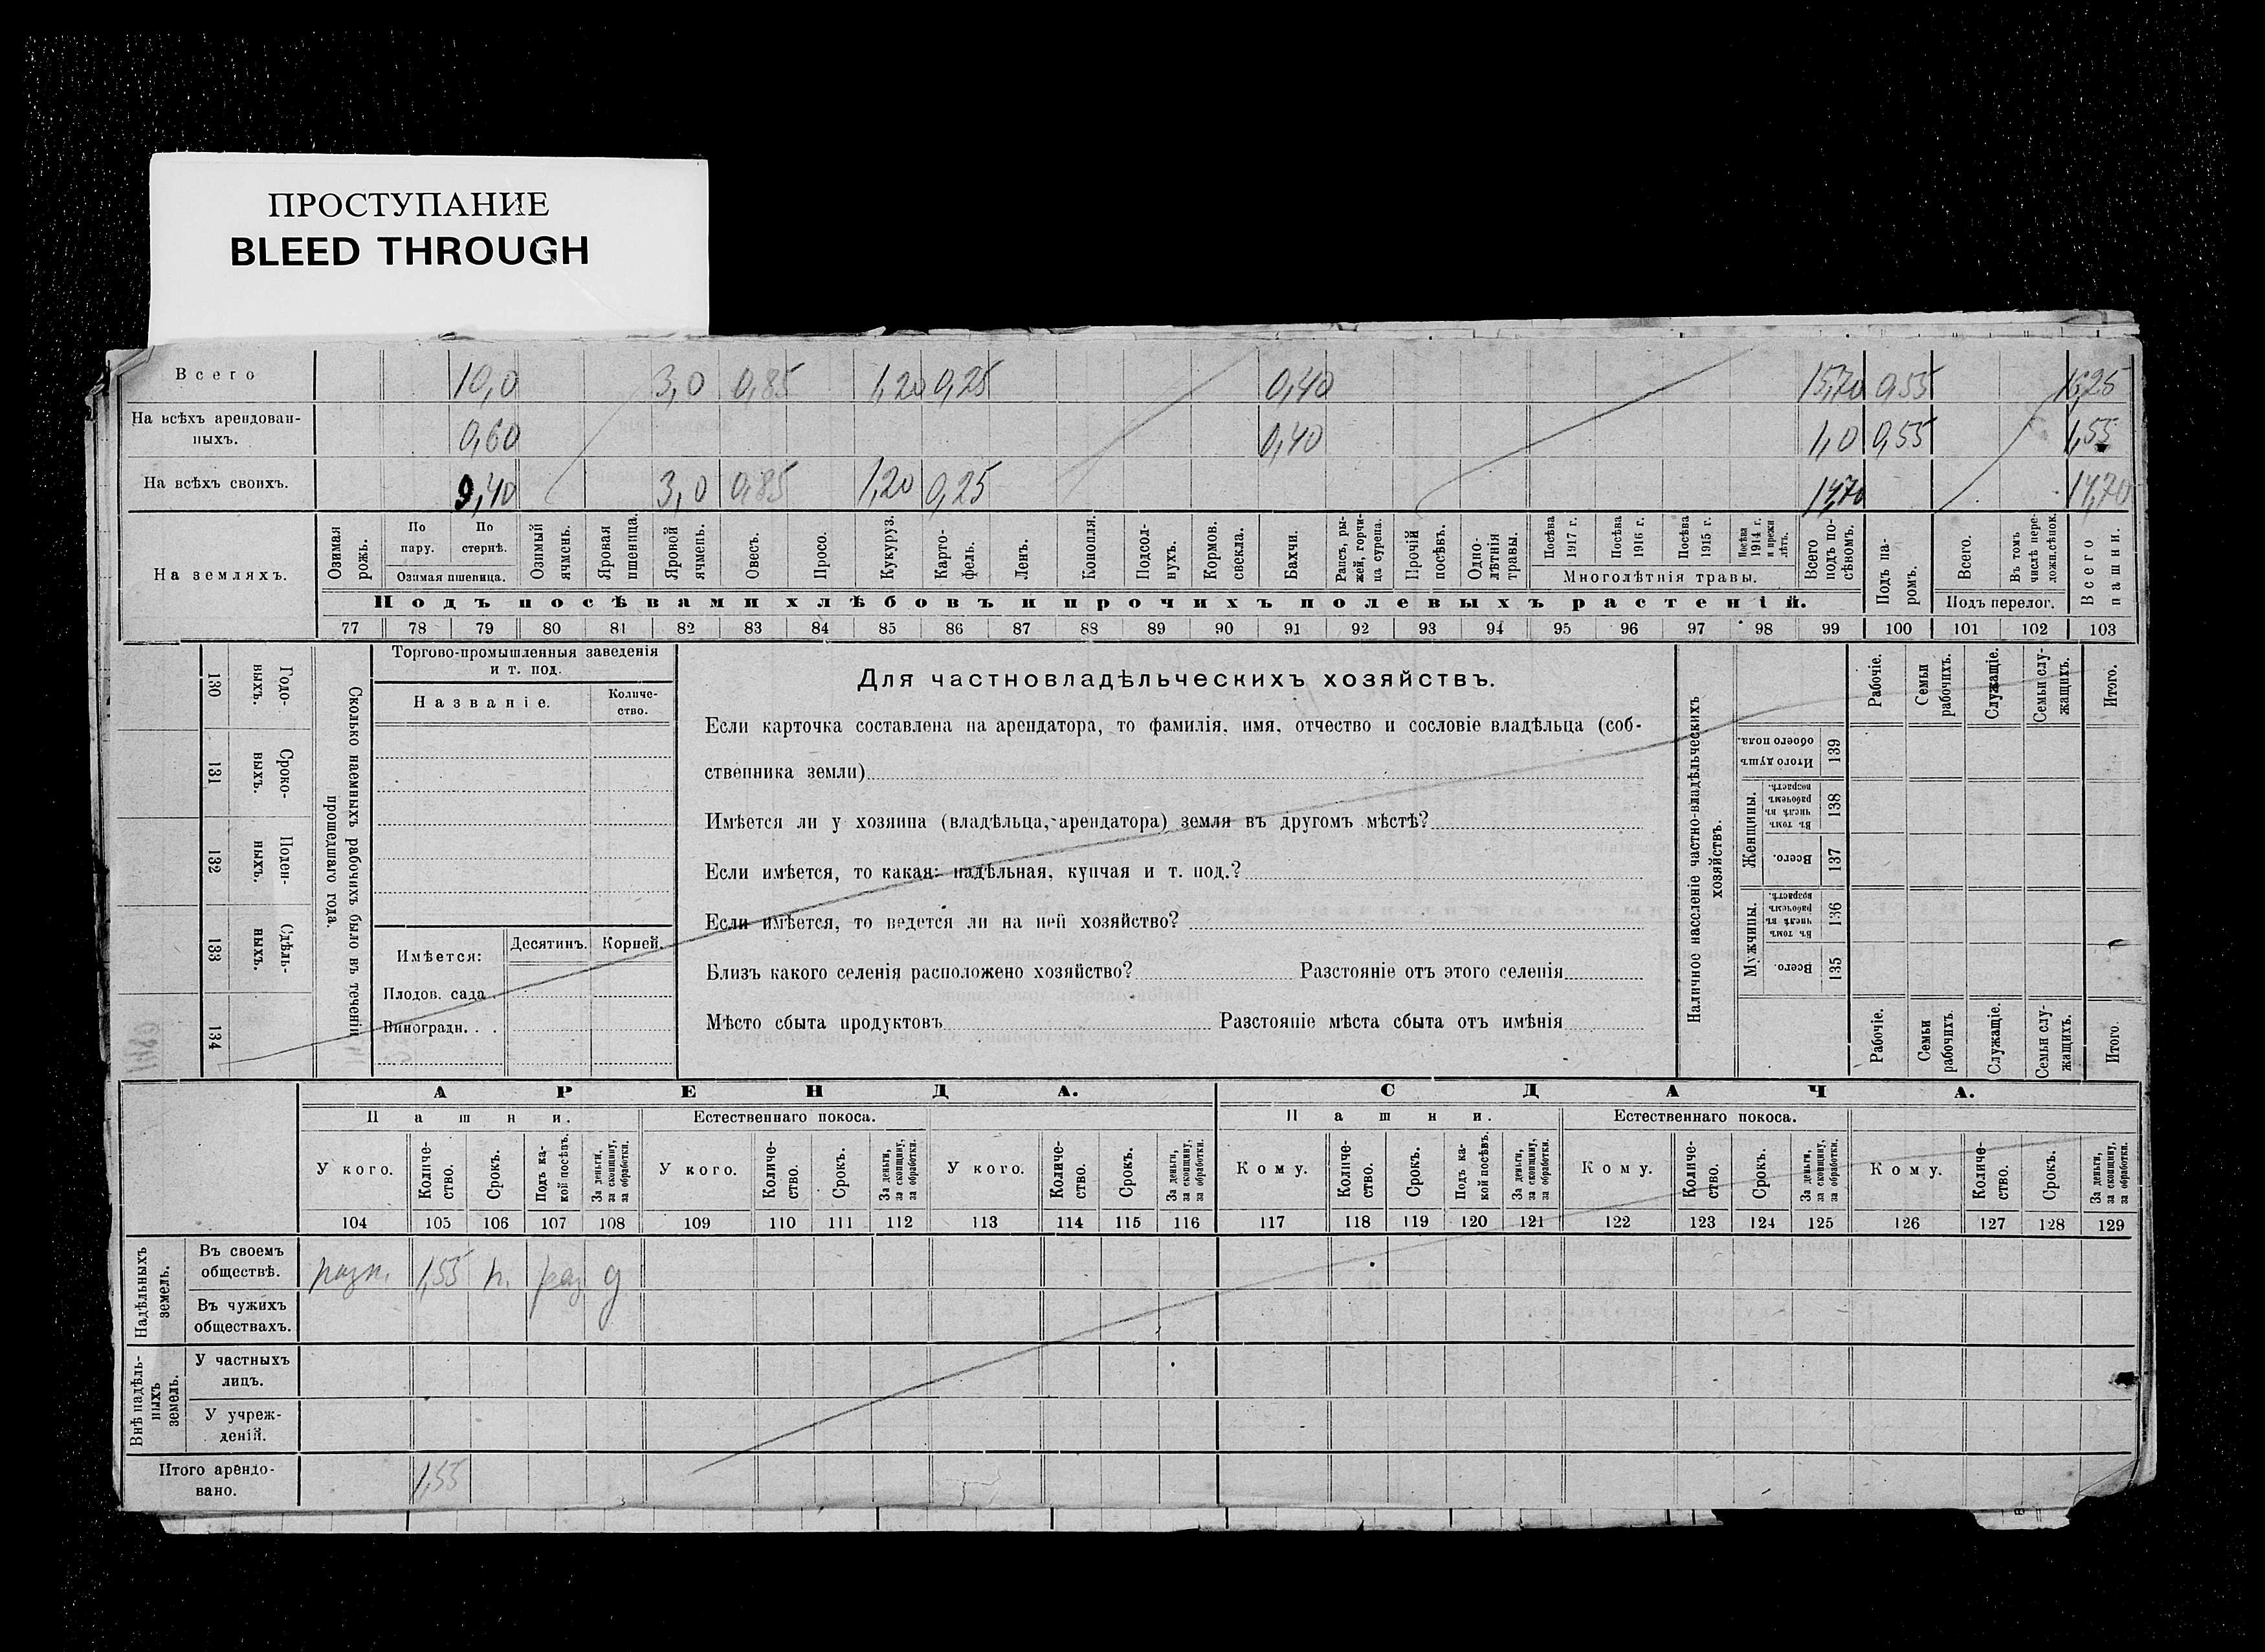 ПРОСТУПАНИЕ
BLEED THROUGH
Всего 10,0 3,0 0,85 1,20 0,25 0,40 15,70 0,55 16,25
На всѣхъ арендован-
ныхъ. 0,60 0,40 1,0 0,55 1,55
На всѣхъ своихъ. 9,40 3,0 0,85 1,20 0,25 14,70 14,70
На земляхъ.
Озимая рожь.
По пару.
По стернѣ.
Озимая пшеница.
Озимый ячмень.
Яровая пшеница.
Яровой ячмень.
Овесъ.
Просо.
Кукуруз.
Карто-
фель.
Ленъ.
Конопля.
Подсол-
нухъ.
Кормов. свекла.
Бахчи.
Рапсъ, ры-
жей, горчи-
ца сурепа.
Прочій посѣвъ.
Одно-
лѣтнія травы.
Посѣва 1917 г.
Посѣва 1916 г.
Посѣва 1915 г.
Посѣва 1914 г. и прежн. лѣтъ.
Многолѣтнія травы.
Всего подъ по-
сѣвомъ.
Подъ па-
ромъ.
Всего.
Въ томъ числѣ пере-
лож.сѣнок.
Подъ перелог.
Всего пашни.
Подъ посѣвами хлѣбовъ и прочихъ полевыхъ растеній.
77 78 79 80 81 82 83 84 85 86 87 88 89 90 91 92 93 94 95 96 97 98 99 100 101 102 103
130 Годо-
ныхъ.
131 Сроко-
ныхъ.
132 Поден-
ныхъ.
133 Сдѣль-
ныхъ.
134
Сколько наемныхъ рабочихъ было въ теченіи
прошедшаго года.
Торгово-промышленныя заведенія
и т. под.
Названіе.
Количе-
ство.
Имѣется: Десятинъ. Корней.
Плодов. сада .
Виноградн. . .
Для частновладѣльческихъ хозяйствъ.
Если карточка составлена на арендатора, то фамилія, имя, отчество и сословіе владѣльца (соб-
ственника земли)
Имѣется ли у хозяина (владѣльца, арендатора) земля въ другомъ мѣстѣ?
Если имѣется, то какая: надѣльная, купчая и т. под.?
Если имѣется, то ведется ли на ней хозяйство?
Близъ какого селенія расположено хозяйство? Разстояніе отъ этого селенія
Мѣсто сбыта продуктовъ Разстояніе мѣста сбыта отъ имѣнія
Наличное населеніе частно-владѣльческихъ
хозяйствъ.
Рабочіе.
Семьи рабочихъ.
Служащіе.
Семьи слу-
жащихъ.
Итого.
Итого душъ обоего пола. 139
Женщины.
Въ томъ числѣ въ рабочемъ возрастѣ. 138
Всего. 137
Мужчины.
Въ томъ числѣ въ рабочемъ возрастѣ. 136
Всего. 135
Рабочіе.
Семьи рабочихъ.
Служащіе.
Семьи слу-
жащихъ.
Итого.
АРЕНДА. СДАЧА.
Пашни. Естественнаго покоса. Пашни. Естественнаго покоса.
У кого.
Количе-
ство.
Срокъ.
Подъ ка-
кой посѣвъ.
За деньги, за скопщину, за обработки.
У кого.
Количе-
ство.
Срокъ.
За деньги, за скопщину, за обработки.
У кого.
Количе-
ство.
Срокъ.
За деньги, за скопщину, за обработки.
Кому.
Количе-
ство.
Срокъ.
Подъ ка-
кой посѣвъ.
За деньги, за скопщину, за обработки.
Кому.
Количе-
ство.
Срокъ.
За деньги, за скопщину, за обработки.
Кому.
Количе-
ство.
Срокъ.
За деньги, за скопщину, за обработки.
104 105 106 107 108 109 110 111 112 113 114 115 116 117 118 119 120 121 122 123 124 125 126 127 128 129
Надѣльныхъ земель.
Въ своемъ
обществѣ. разн. 1,55 раз
Въ чужихъ
обществахъ.
Внѣ надѣль-
ныхъ земель.
У частныхъ
лицъ.
У учреж-
деній.
Итого арендо-
вано. 1,55